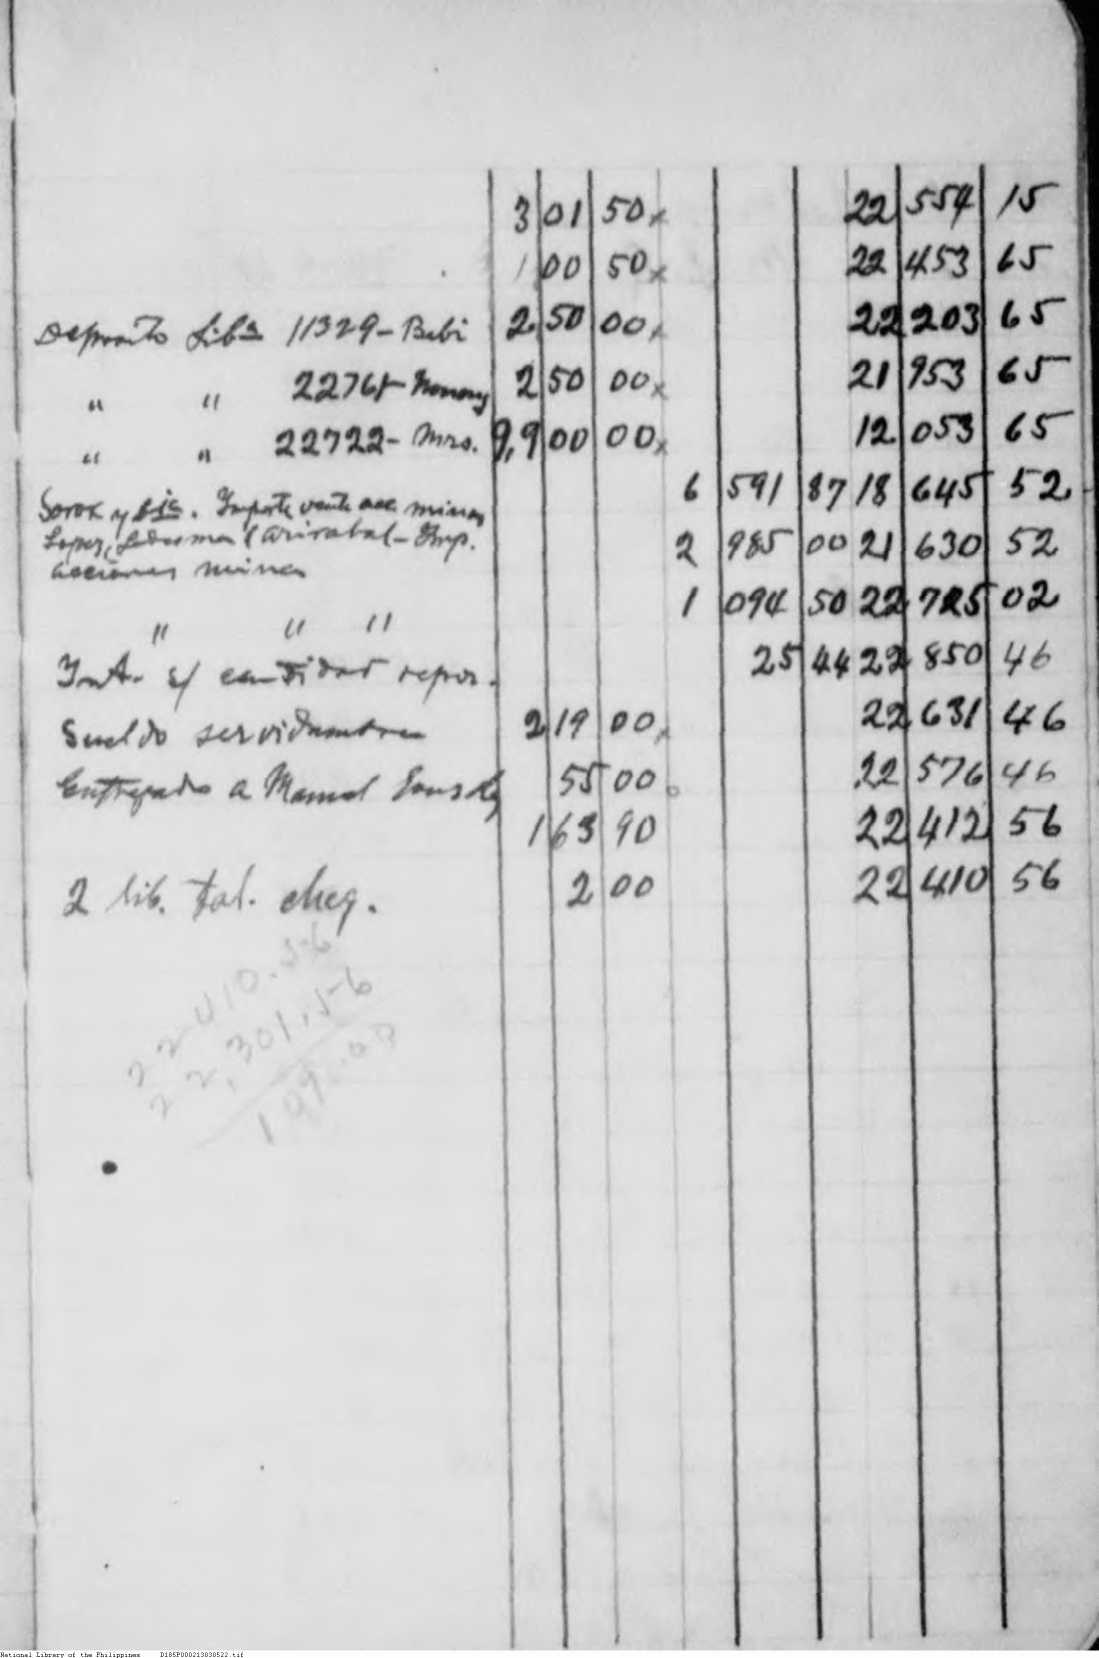 301 50x 22 554 15
100 50x 22 453 65
Deposito Lib.a 11329 - Bebi 250 00x 22 203 65
" " 22761- Nonong 250 00x 21 953 65
" " 22722- Mrs. 9,900 00x 12 053 65
Sorox y Cia. Importe venta acc. minas 6 591 87 18 645 52
Lopez, Ledesma & Arrizabal - Imp. 2 985 00 21 630 52
acciones minas
" " " 1 094 50 22 725 02
Int. s/ cantidad repos. 25 44 22 850 46
Sueldo servidumbre 219 00x 22 631 46
Entregado a Manuel 55 00o 22 576 46
163 90 22 412 56
2 lib. tal. cheq. 2 00 22 410 56
22 410.56
22,301.56
109.00
National Library of the Philippines D185P000213030522.tif